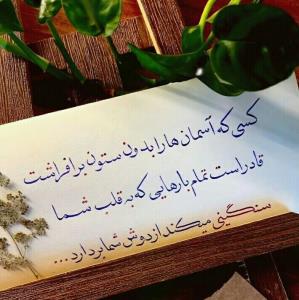 کسی که آسمان ها را بدون ستون برافراشت
قادر است تمام بارهایی که به قلب شما
سنگینی میکند از دوش شما بردارد...